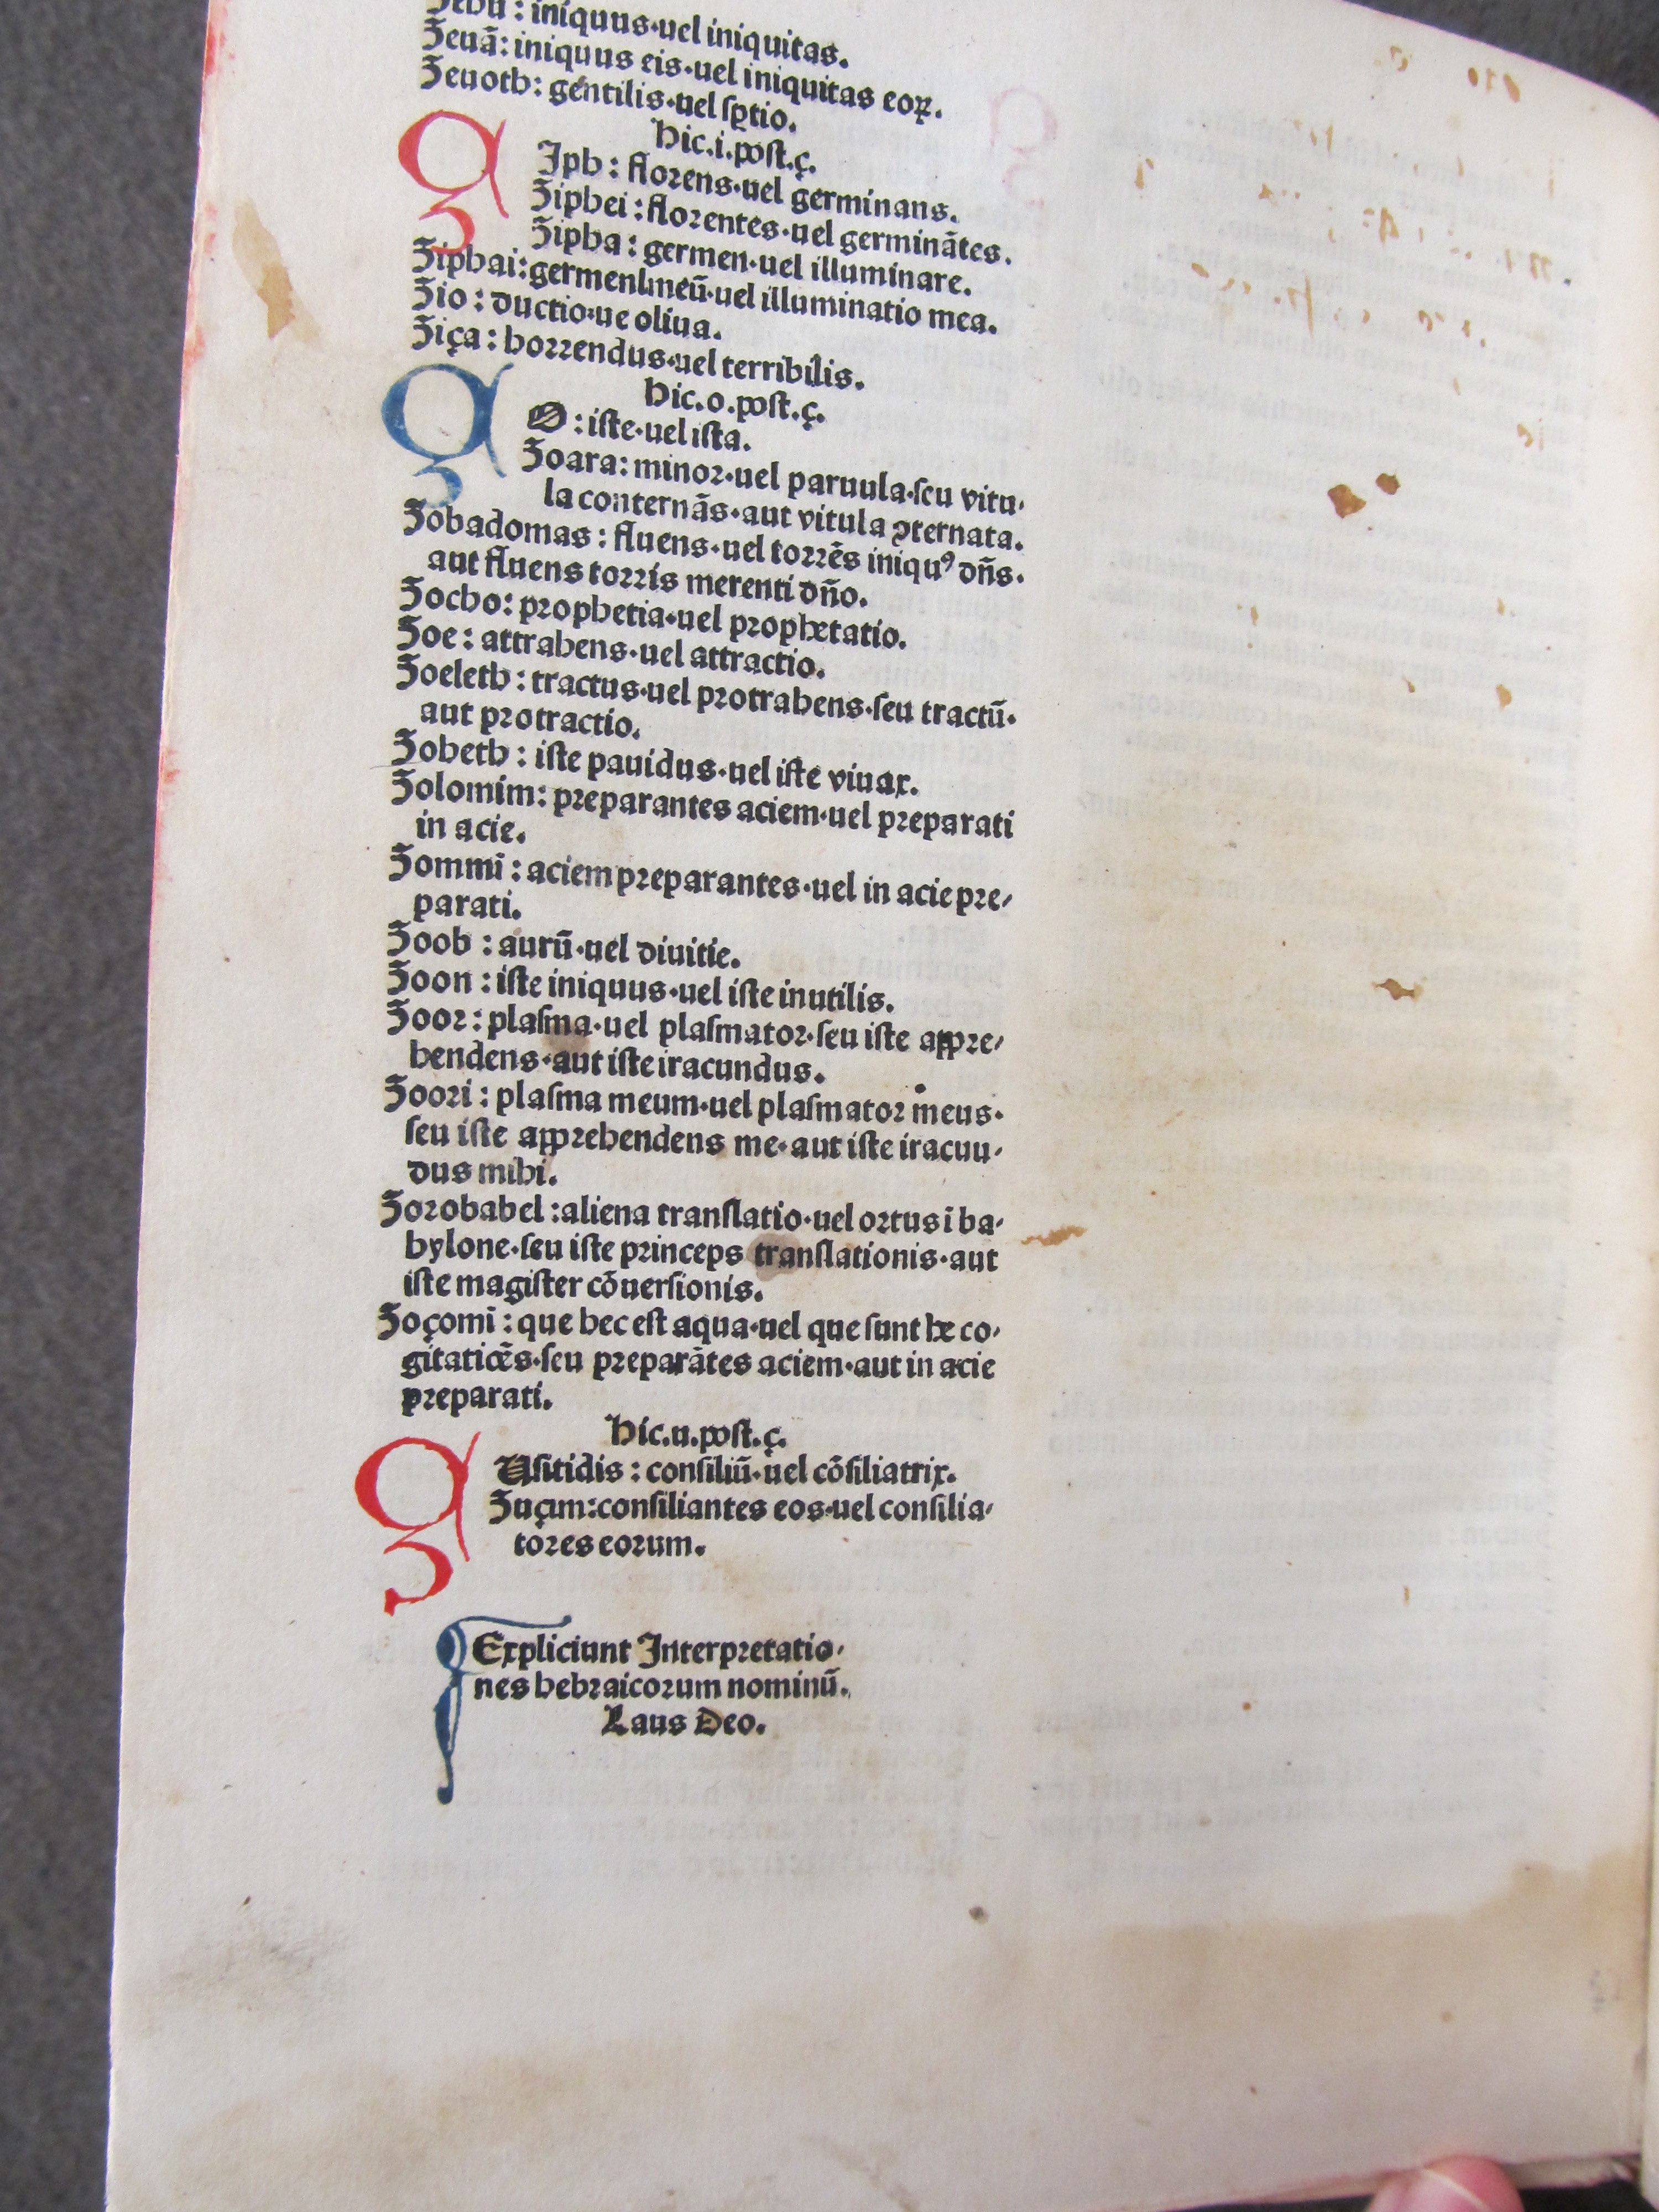 Zebu : iniquus·uel iniquitas.
Zeuā: iniquus eis·uel iniquitas eoꝝ.
Zeuoth: gentilis·uel sꝑtio.
Hic.i.post.ç.
ZIph : florens·uel germinans.
Ziphei : florentes·uel germinātes.
Zipha : germen·uel illuminare.
Ziphai: germen meū·uel illuminatio mea.
Zio : ductio·ue oliua.
Ziça : horrendus·uel terribilis.
Hic.o.post.ç.
ZO : iste·uel ista.
Zoara: minor·uel paruula·seu vitu⸗
la conternās·aut vitula ꝯternata.
Zobadomas : fluens·uel torrēs iniquꝰ dn̄s·
aut fluens torris merenti dn̄o.
Zocho: prophetia·uel prophetatio.
Zoe : attrahens·uel attractio.
Zoeleth : tractus·uel protrahens·seu tractū·
aut protractio.
Zoheth : iste pauidus·uel iste viuax.
Zolomim: preparantes aciem·uel preparati
in acie.
Zommī : aciem preparantes·uel in acie pre⸗
parati.
Zoob : aurū·uel diuitie.
Zoon : iste iniquus·uel iste inutilis.
Zoor : plasma·uel plasmator·seu iste appre⸗
hendens·aut iste iracundus.
Zoori : plasma meum·uel plasmator meus·
seu iste apprehendens me·aut iste iracuu⸗
dus mihi.
Zorobabel : aliena translatio·uel ortus i ba⸗
bylone·seu iste princeps translationis·aut
iste magister cōuersionis.
Zoçomī : que hec est aqua·uel que sunt he co⸗
gitatiōes·seu preparātes aciem·aut in acie
preparati.
Hic.u.post.ç.
ZUsitidis : consiliū·uel cōsiliatrix.
Zuçım: consiliantes eos·uel consilia⸗
tores eorum.
Expliciunt Interpretatio⸗
nes hebraicorum nominū.
Laus Deo.